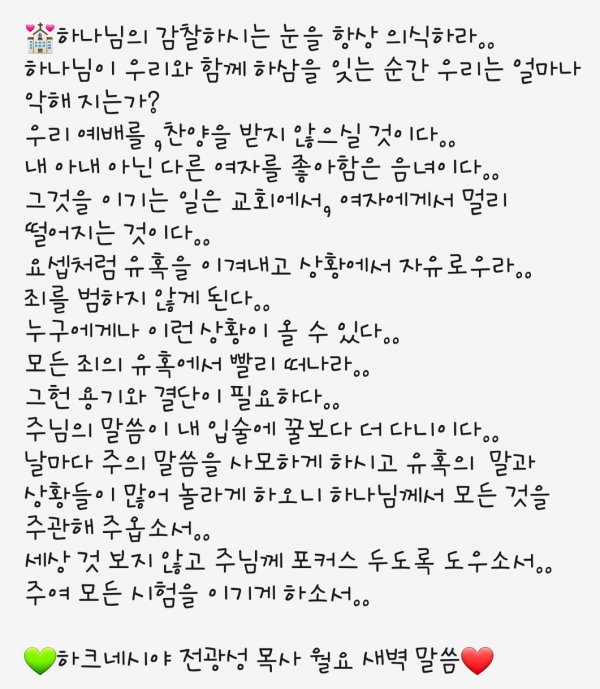 💒하나님의 감찰하시는 눈을 항상 의식하라。。
하나님이 우리와 함께 하삼을 잊는 순간 우리는 얼마나
악해 지는가?
우리 예배를 ,찬양을 받지 않으실 것이다。。
내 아내 아닌 다른 여자를 좋아함은 음녀이다。。
그것을 이기는 일은 교회에서, 여자에게서 멀리
떨어지는 것이다。。
요셉처럼 유혹을 이겨내고 상황에서 자유로우라。。
죄를 범하지 않게 된다。。
누구에게나 이런 상황이 올 수 있다。。
모든 죄의 유혹에서 빨리 떠나라。。
그헌 용기와 결단이 필요하다。。
주님의 말씀이 내 입술에 꿀보다 더 다니이다。。
날마다 주의 말씀을 사모하게 하시고 유혹의  말과
상황들이 많어 놀라게 하오니 하나님께서 모든 것을
주관해 주옵소서。。
세상 것 보지 않고 주님께 포커스 두도록 도우소서。。
주여 모든 시험을 이기게 하소서。。
💚하크네시야 전광성 목사 월요 새벽 말씀❤️